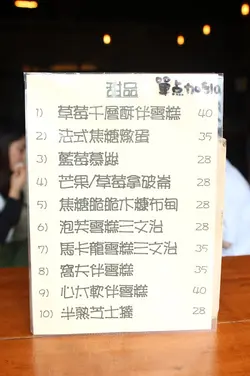 甜品
單点加$10
1) 草莓千層酥伴雪糕 40
2) 法式焦糖燉蛋 35
3) 藍莓慕絲 28
4) 芒果/草莓拿破崙 28
5) 焦糖脆脆作糖布甸 28
6) 泡芙雪糕三文治 28
7) 馬卡龍雪糕三文治 35
8) 窩夫伴雪糕 35
9) 心太軟伴雪糕 40
10) 半熟芝士撻 28